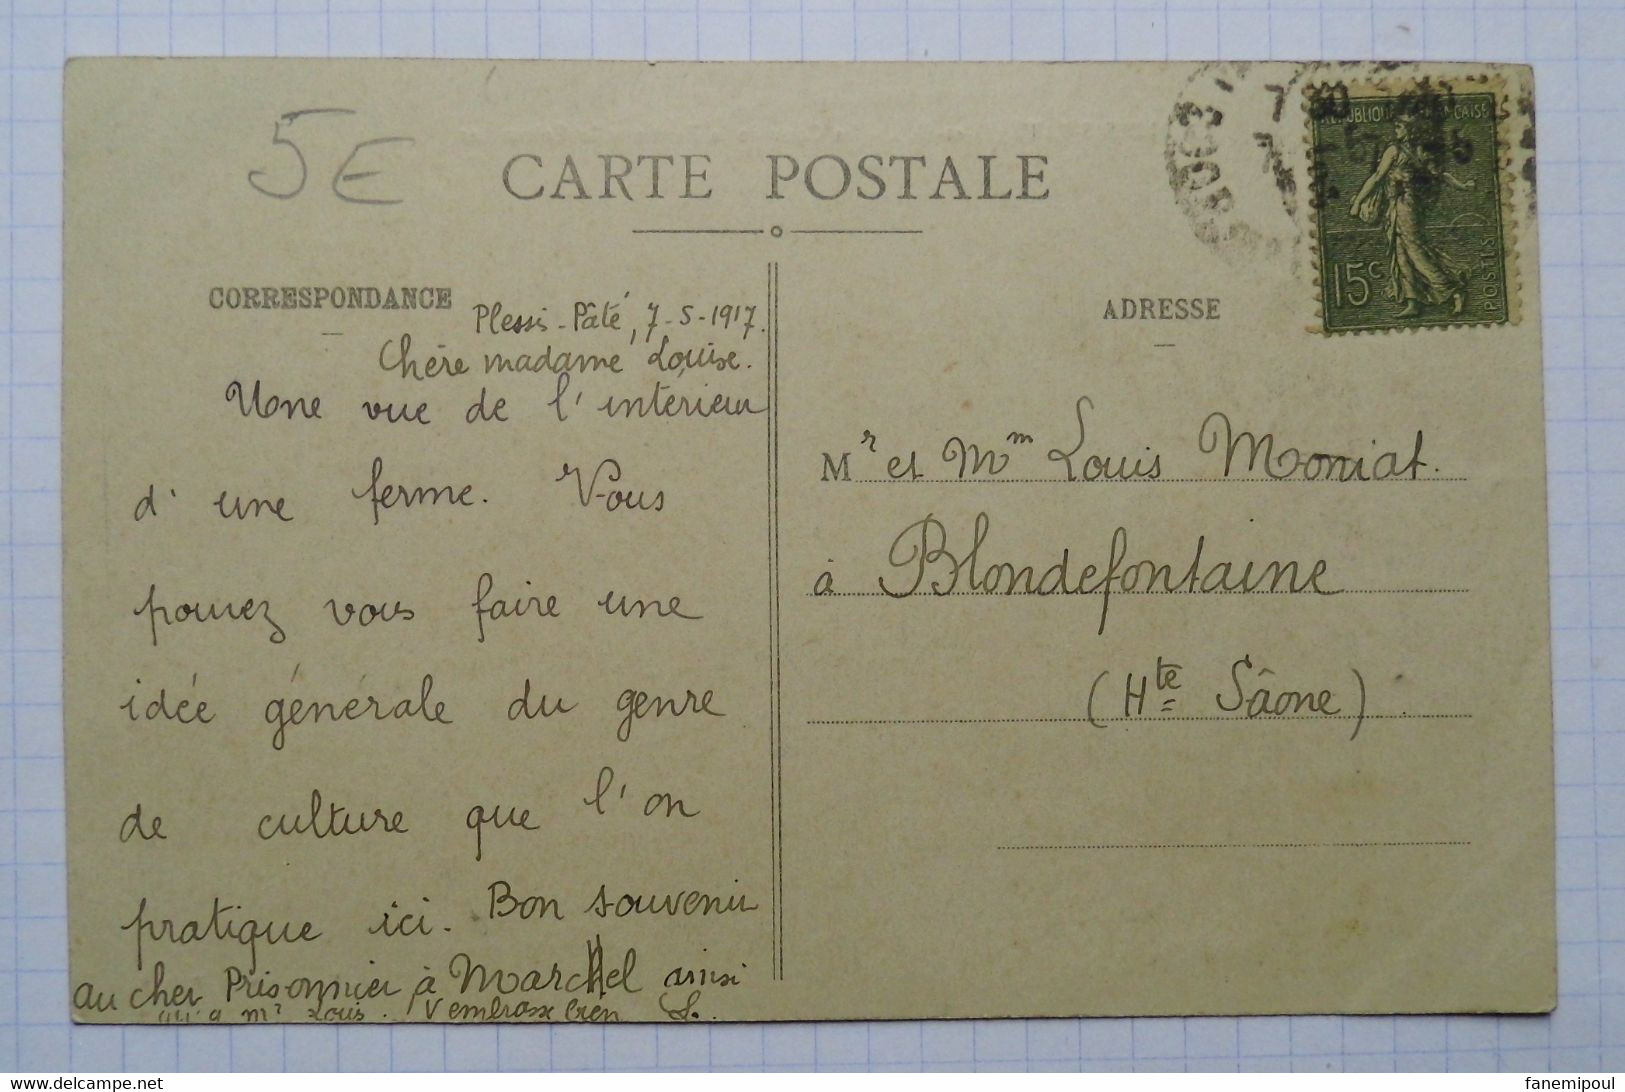 5E
CARTE POSTALE
CORRESPONDANCE
Plessis-Pâté, 7-5-1917.
Chère madame Louise.
Une vue de l'intérieur
d'une ferme. Vous
pouvez vous faire une
idée générale du genre
de culture que l'on
pratique ici. Bon souvenir
au cher Prisonnier à Marcel ainsi
qu'à Mr Louis. V embrasse bien L.
ADRESSE
Mr et Mm Louis Moniat.
à Blondefontaine
(Hte Sâone)
RÉPUBLIQUE FRANÇAISE
15c
POSTES
www.delcampe.net
fanemipoul